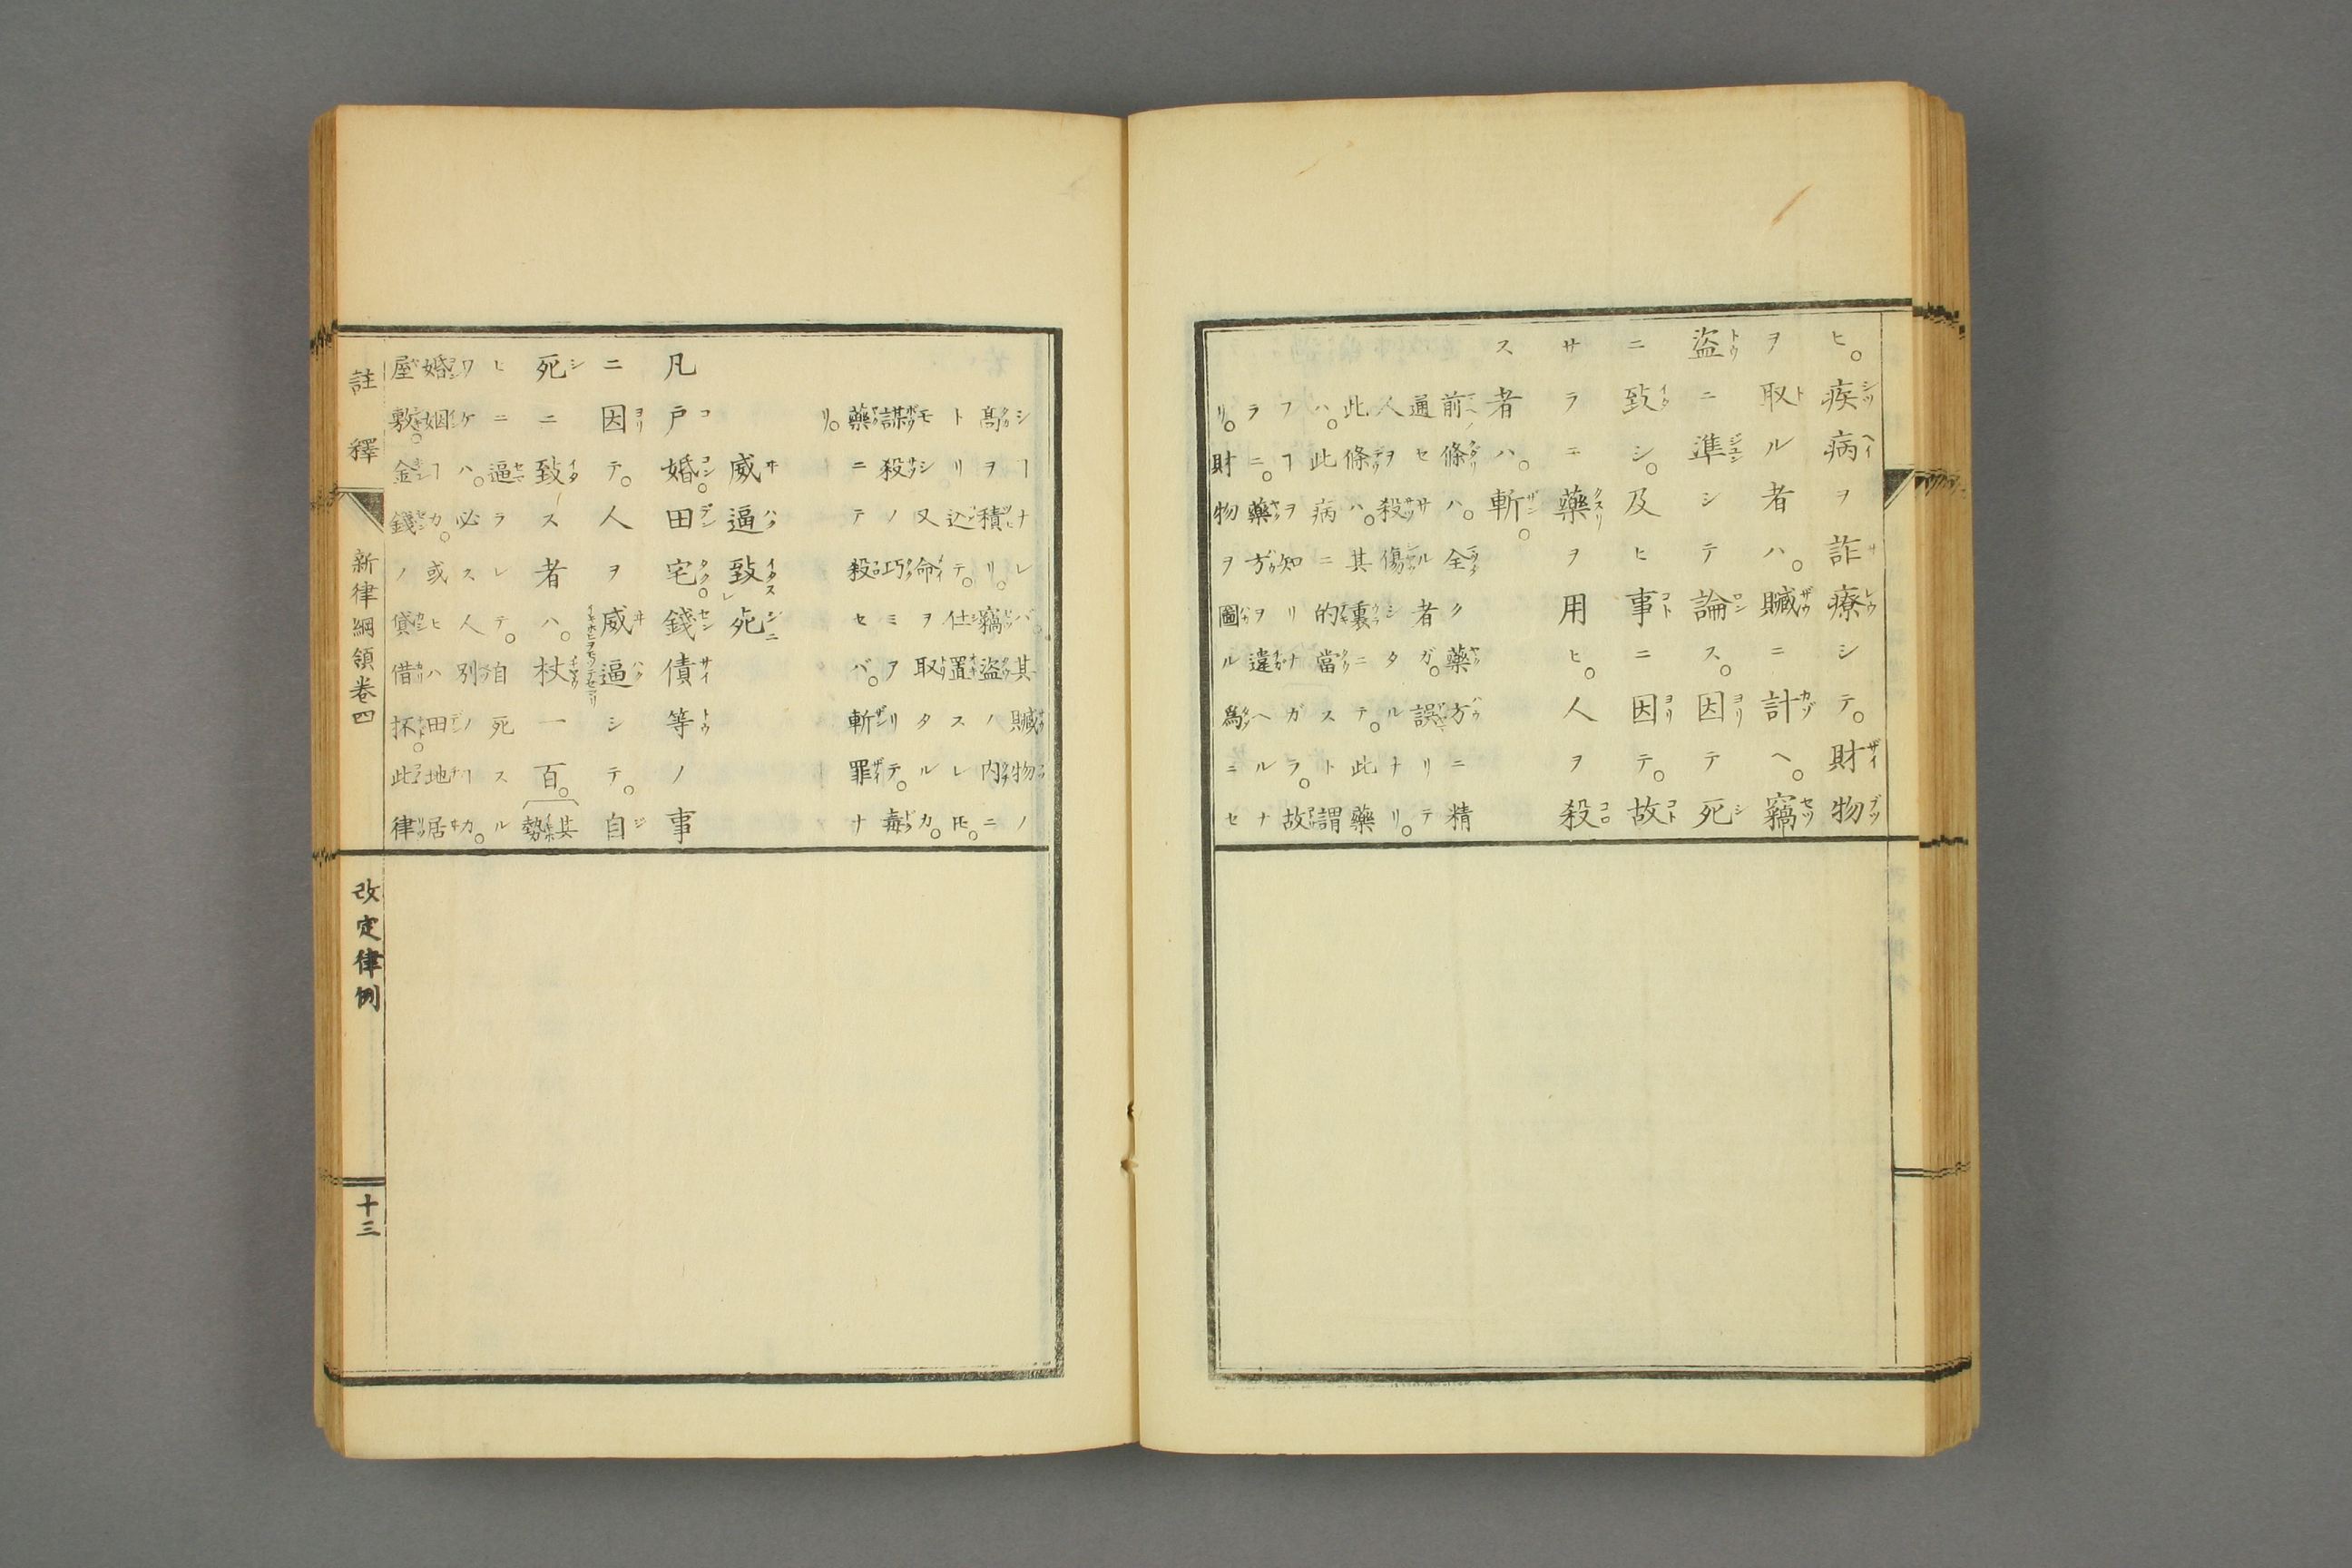 ヒ。疾病ヲ詐療シテ。財物
ヲ取ル者ハ。贓ニ計ヘ。竊
盜ニ準シテ論ス。因テ死
ニ致シ。及ヒ事ニ因テ。故
サラニ藥ヲ用ヒ。人ヲ殺
ス者ハ。斬。
前條ハ。全ク藥方ニ精
通セサル者ガ。誤リテ
人ヲ殺傷シタルナリ。
此條ハ。其裏ニテ。此藥
ハ。此病ニ的當スト謂
フヿヲ知リナガラ。故
ラニ。藥方ヲ違ヘルナ
リ。財物ヲ圖ル爲ニセ
シヿナレバ。其贓物ノ
高ヲ積リ。竊盜ノ内ニ
トリ込テ。仕置スレ𪜈。
モシ又命ヲ取タルカ。
謀殺ノ巧ミアリテ。毒
藥ニテ殺セバ。斬罪ナ
リ。
威逼致死
凡戸婚。田宅。錢債等ノ事
ニ因テ。人ヲ威逼シテ。自
死ニ致ス者ハ。杖一百。其勢
ヒニ逼ラレテ。自死スル
ワケハ。必ス人別ノヿカ。
婚姻ヿカ。或ヒハ田地居
屋敷。金錢ノ貸借抔。此律
註釋 新律綱領卷四 改定律例 十三